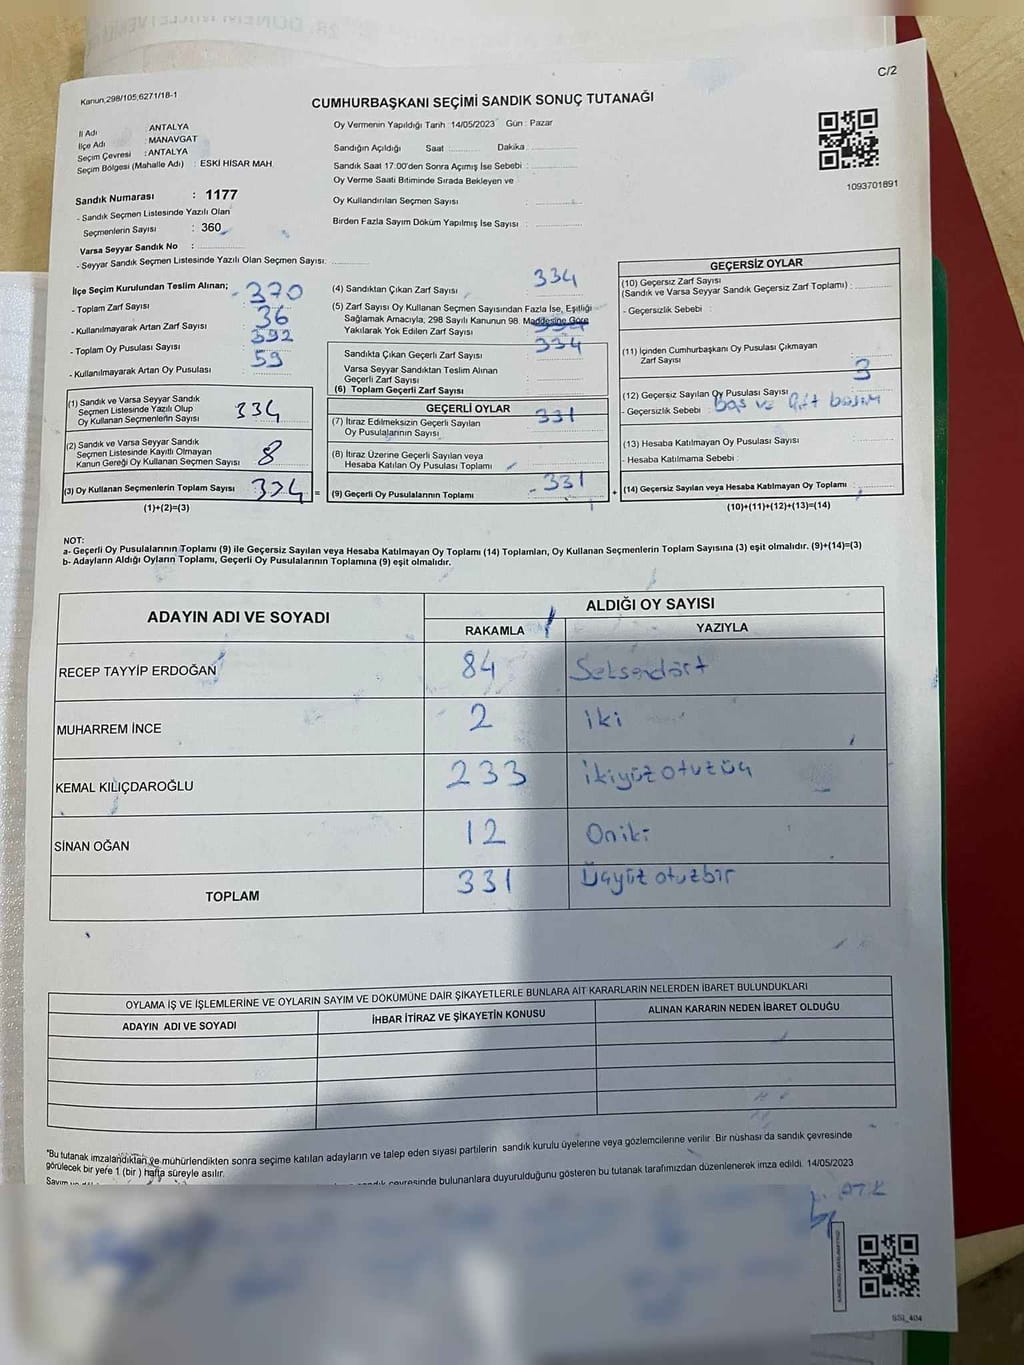 C/2
Kanun;298/105;6271/18-1
CUMHURBAŞKANI SEÇİMİ SANDIK SONUÇ TUTANAĞI
İl Adı : ANTALYA
İlçe Adı : MANAVGAT
Seçim Çevresi : ANTALYA
Seçim Bölgesi (Mahalle Adı) : ESKİ HİSAR MAH.
Sandık Numarası : 1177
- Sandık Seçmen Listesinde Yazılı Olan
Seçmenlerin Sayısı : 360
Varsa Seyyar Sandık No :
- Seyyar Sandık Seçmen Listesinde Yazılı Olan Seçmen Sayısı:
Oy Vermenin Yapıldığı Tarih : 14/05/2023 Gün : Pazar
Sandığın Açıldığı Saat Dakika
Sandık Saat 17:00'den Sonra Açımış İse Sebebi :
Oy Verme Saati Bitiminde Sırada Bekleyen ve
Oy Kullandırılan Seçmen Sayısı :
Birden Fazla Sayım Döküm Yapılmış İse Sayısı :
1093701891
İlçe Seçim Kurulundan Teslim Alınan;
- Toplam Zarf Sayısı : 370
- Kullanılmayarak Artan Zarf Sayısı : 36
- Toplam Oy Pusulası Sayısı : 392
- Kullanılmayarak Artan Oy Pusulası : 59
(1) Sandık ve Varsa Seyyar Sandık
Seçmen Listesinde Yazılı Olup
Oy Kullanan Seçmenlerin Sayısı 334
(2) Sandık ve Varsa Seyyar Sandık
Seçmen Listesinde Kayıtlı Olmayan
Kanun Gereği Oy Kullanan Seçmen Sayısı 8
(3) Oy Kullanan Seçmenlerin Toplam Sayısı 334 =
(1)+(2)=(3)
(4) Sandıktan Çıkan Zarf Sayısı 334
(5) Zarf Sayısı Oy Kullanan Seçmen Sayısından Fazla İse, Eşitliği
Sağlamak Amacıyla, 298 Sayılı Kanunun 98. Maddesine Göre
Yakılarak Yok Edilen Zarf Sayısı
Sandıkta Çıkan Geçerli Zarf Sayısı 334
Varsa Seyyar Sandıktan Teslim Alınan
Geçerli Zarf Sayısı
(6) Toplam Geçerli Zarf Sayısı
GEÇERLİ OYLAR
(7) İtiraz Edilmeksizin Geçerli Sayılan
Oy Pusulalarının Sayısı 331
(8) İtiraz Üzerine Geçerli Sayılan veya
Hesaba Katılan Oy Pusulası Toplamı
(9) Geçerli Oy Pusulalarının Toplamı 331 +
GEÇERSİZ OYLAR
(10) Geçersiz Zarf Sayısı
(Sandık ve Varsa Seyyar Sandık Geçersiz Zarf Toplamı) :
- Geçersizlik Sebebi :
(11) İçinden Cumhurbaşkanı Oy Pusulası Çıkmayan
Zarf Sayısı :
(12) Geçersiz Sayılan Oy Pusulası Sayısı : 3
- Geçersizlik Sebebi : boş ve çift basım
(13) Hesaba Katılmayan Oy Pusulası Sayısı :
- Hesaba Katılmama Sebebi :
(14) Geçersiz Sayılan veya Hesaba Katılmayan Oy Toplamı :
(10)+(11)+(12)+(13)=(14)
NOT:
a- Geçerli Oy Pusulalarının Toplamı (9) ile Geçersiz Sayılan veya Hesaba Katılmayan Oy Toplamı (14) Toplamları, Oy Kullanan Seçmenlerin Toplam Sayısına (3) eşit olmalıdır. (9)+(14)=(3)
b- Adayların Aldığı Oyların Toplamı, Geçerli Oy Pusulalarının Toplamına (9) eşit olmalıdır.
ADAYIN ADI VE SOYADI ALDIĞI OY SAYISI
RAKAMLA YAZIYLA
RECEP TAYYİP ERDOĞAN 84 Seksendört
MUHARREM İNCE 2 iki
KEMAL KILIÇDAROĞLU 233 ikiyüzotuzüç
SİNAN OĞAN 12 Oniki
TOPLAM 331 Üçyüzotuzbir
OYLAMA İŞ VE İŞLEMLERİNE VE OYLARIN SAYIM VE DÖKÜMÜNE DAİR ŞİKAYETLERLE BUNLARA AİT KARARLARIN NELERDEN İBARET BULUNDUKLARI
ADAYIN ADI VE SOYADI İHBAR İTİRAZ VE ŞİKAYETİN KONUSU ALINAN KARARIN NEDEN İBARET OLDUĞU
"Bu tutanak imzalandıktan ve mühürlendikten sonra seçime katılan adayların ve talep eden siyasi partilerin sandık kurulu üyelerine veya gözlemcilerine verilir. Bir nüshası da sandık çevresinde
görülecek bir yere 1 (bir) hafta süreyle asılır.
çevresinde bulunanlara duyurulduğunu gösteren bu tutanak tarafımızdan düzenlenerek imza edildi. 14/05/2023
SSI_404